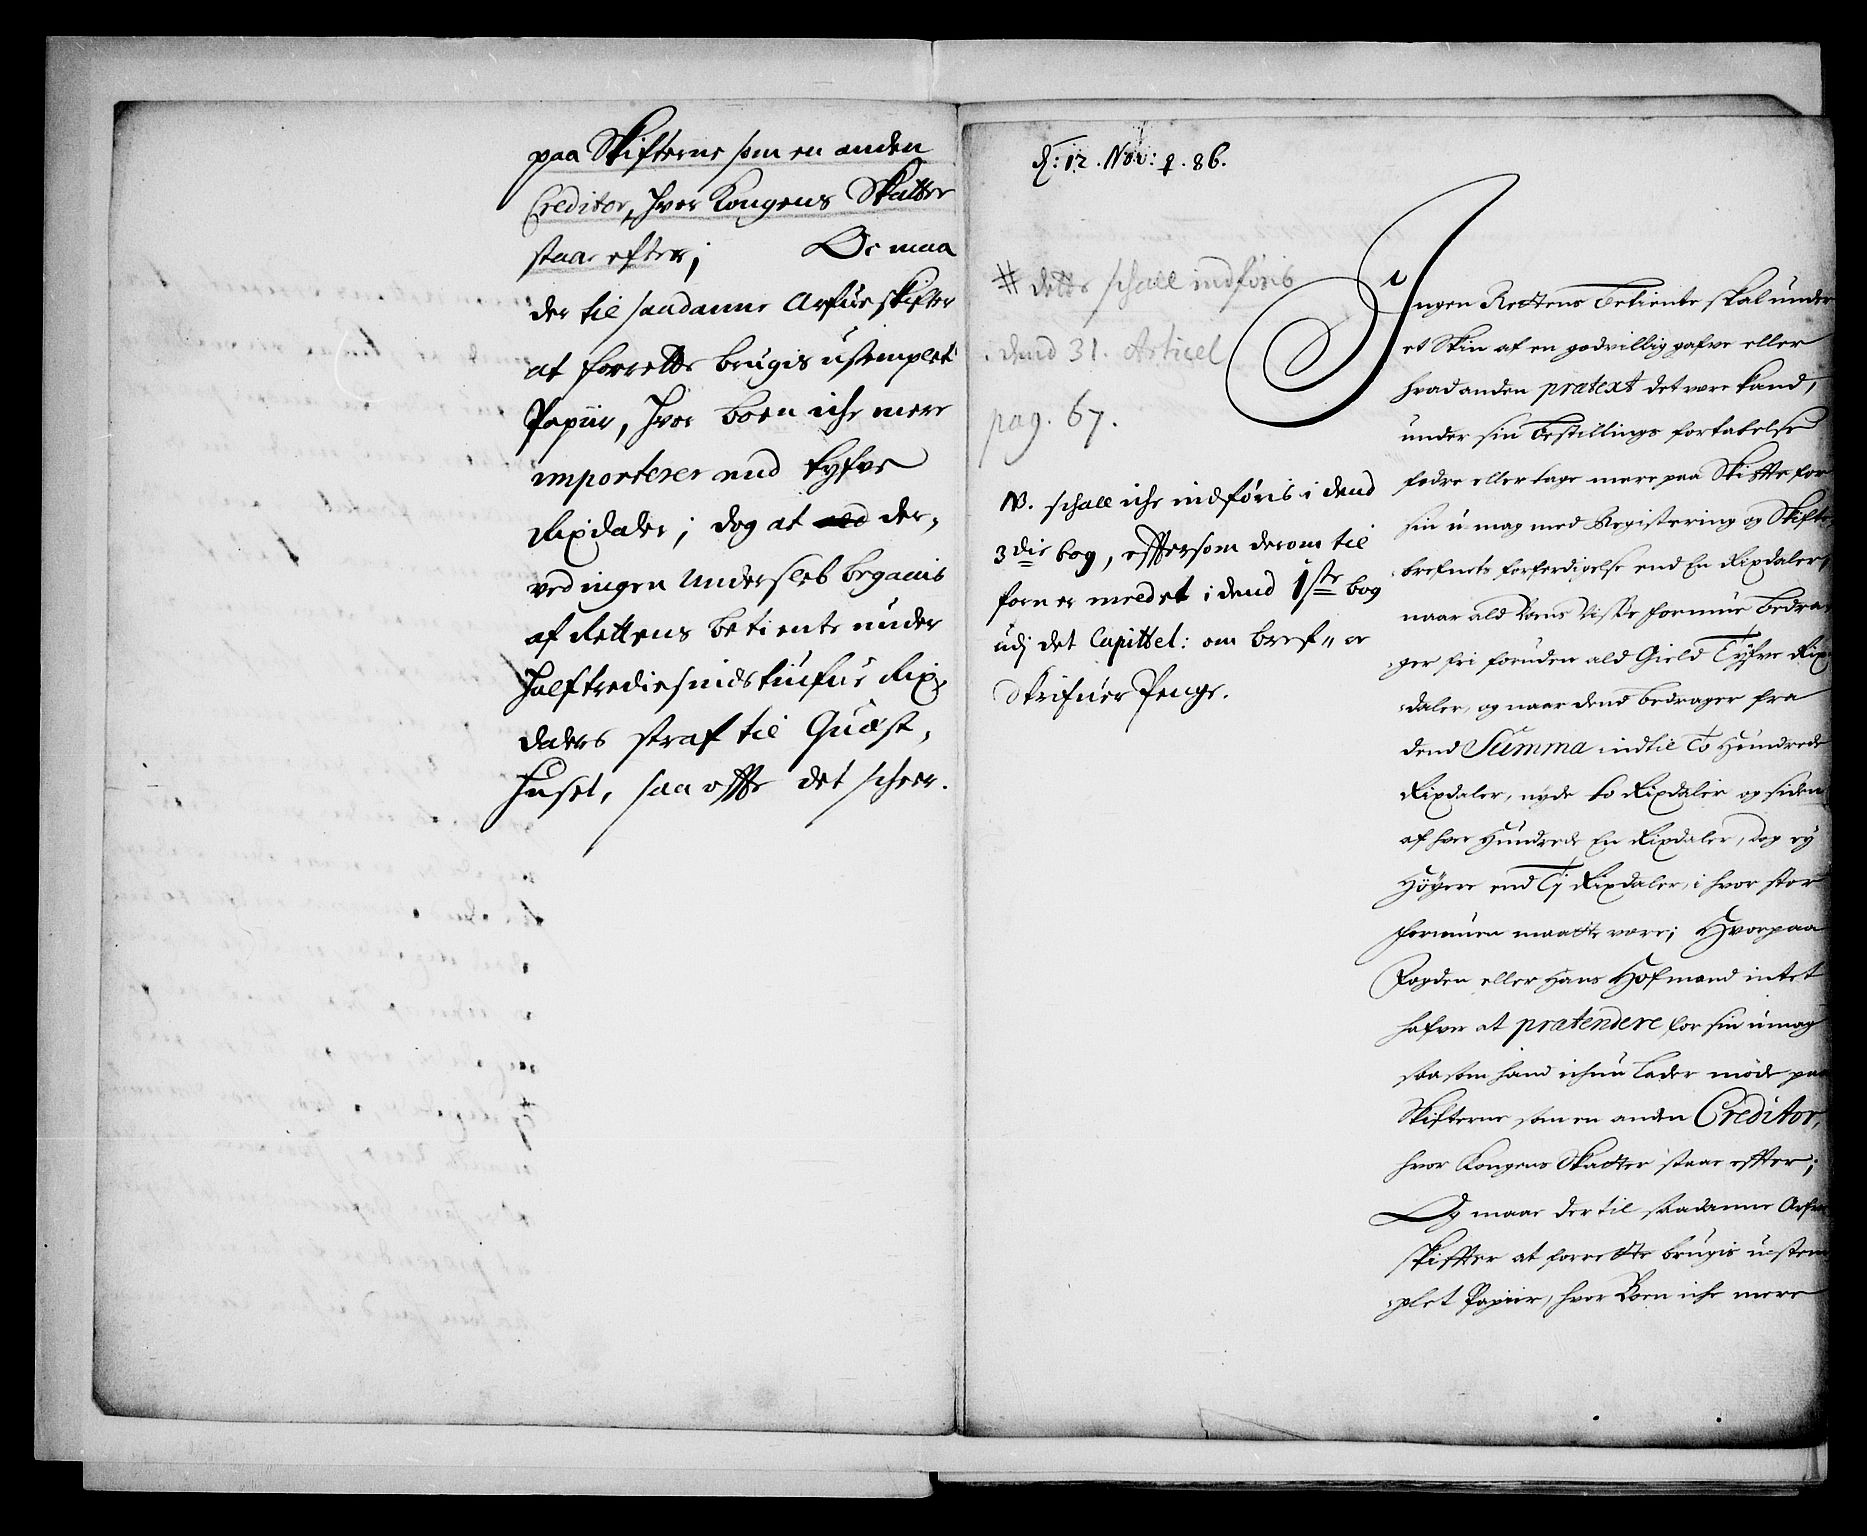 paa Skifterne som en anden
Creditor, hvor Kongens Skatter
staar efter; Oc maa
der til saadanne Arfue skifter
at forrette brugis ustemplet
Papiir, hvor boen iche mere
importerer end tyfve
Rixdaler; dog at ald der,
ved ingen Undersleb begaais
af Rettens betiente under
halftrediesindstiufue Rix,
dalers straf til Quæst,
huset, saa offte det scheer.
d: 12. Nov: 86.
# dette schall indføris
i dend 31. Articel
pag. 67.
NB. schall iche indføris i dend
3die bog, effersom derom til
forn er meldet i dend 1ste bog
udj det Capittel: om bref,, oc
Skrifuer Penge.
Ingen Rettens Betiente skal under
et Skin af en godvillig gafve eller
hvad anden prætext det være kand,
under sin Bestillings fortabelse
fodre eller tage mere paa Skiffte for
sin umag med Registering og Skifte
brefuets forferdigelse end En Rixdaler,
naar ald Boens visse formue bedra-
ger fri foruden ald Gield Tyfve Rix
daler, og naar dend bedrager fra
dend Summa indtil To Hundrede
Rixdaler, nyde to Rixdaler og siden
af hver Hundrede En Rixdaler, dog ey
Høyere end Ty Rixdaler, i hvor stor
formuen maatte være; Hvorpaa
Fogden eller Hans Hofmand intet
hafver at prætendere for sin umag
saasom hand ichun lader møde paa
Skifterne som en anden Creditor,
hvor Kongens Skatter staar effter;
Og maae der til saadanne Arfve
skiffter at forrette brugis ustem
plet Papiir, hvor Boen iche mere